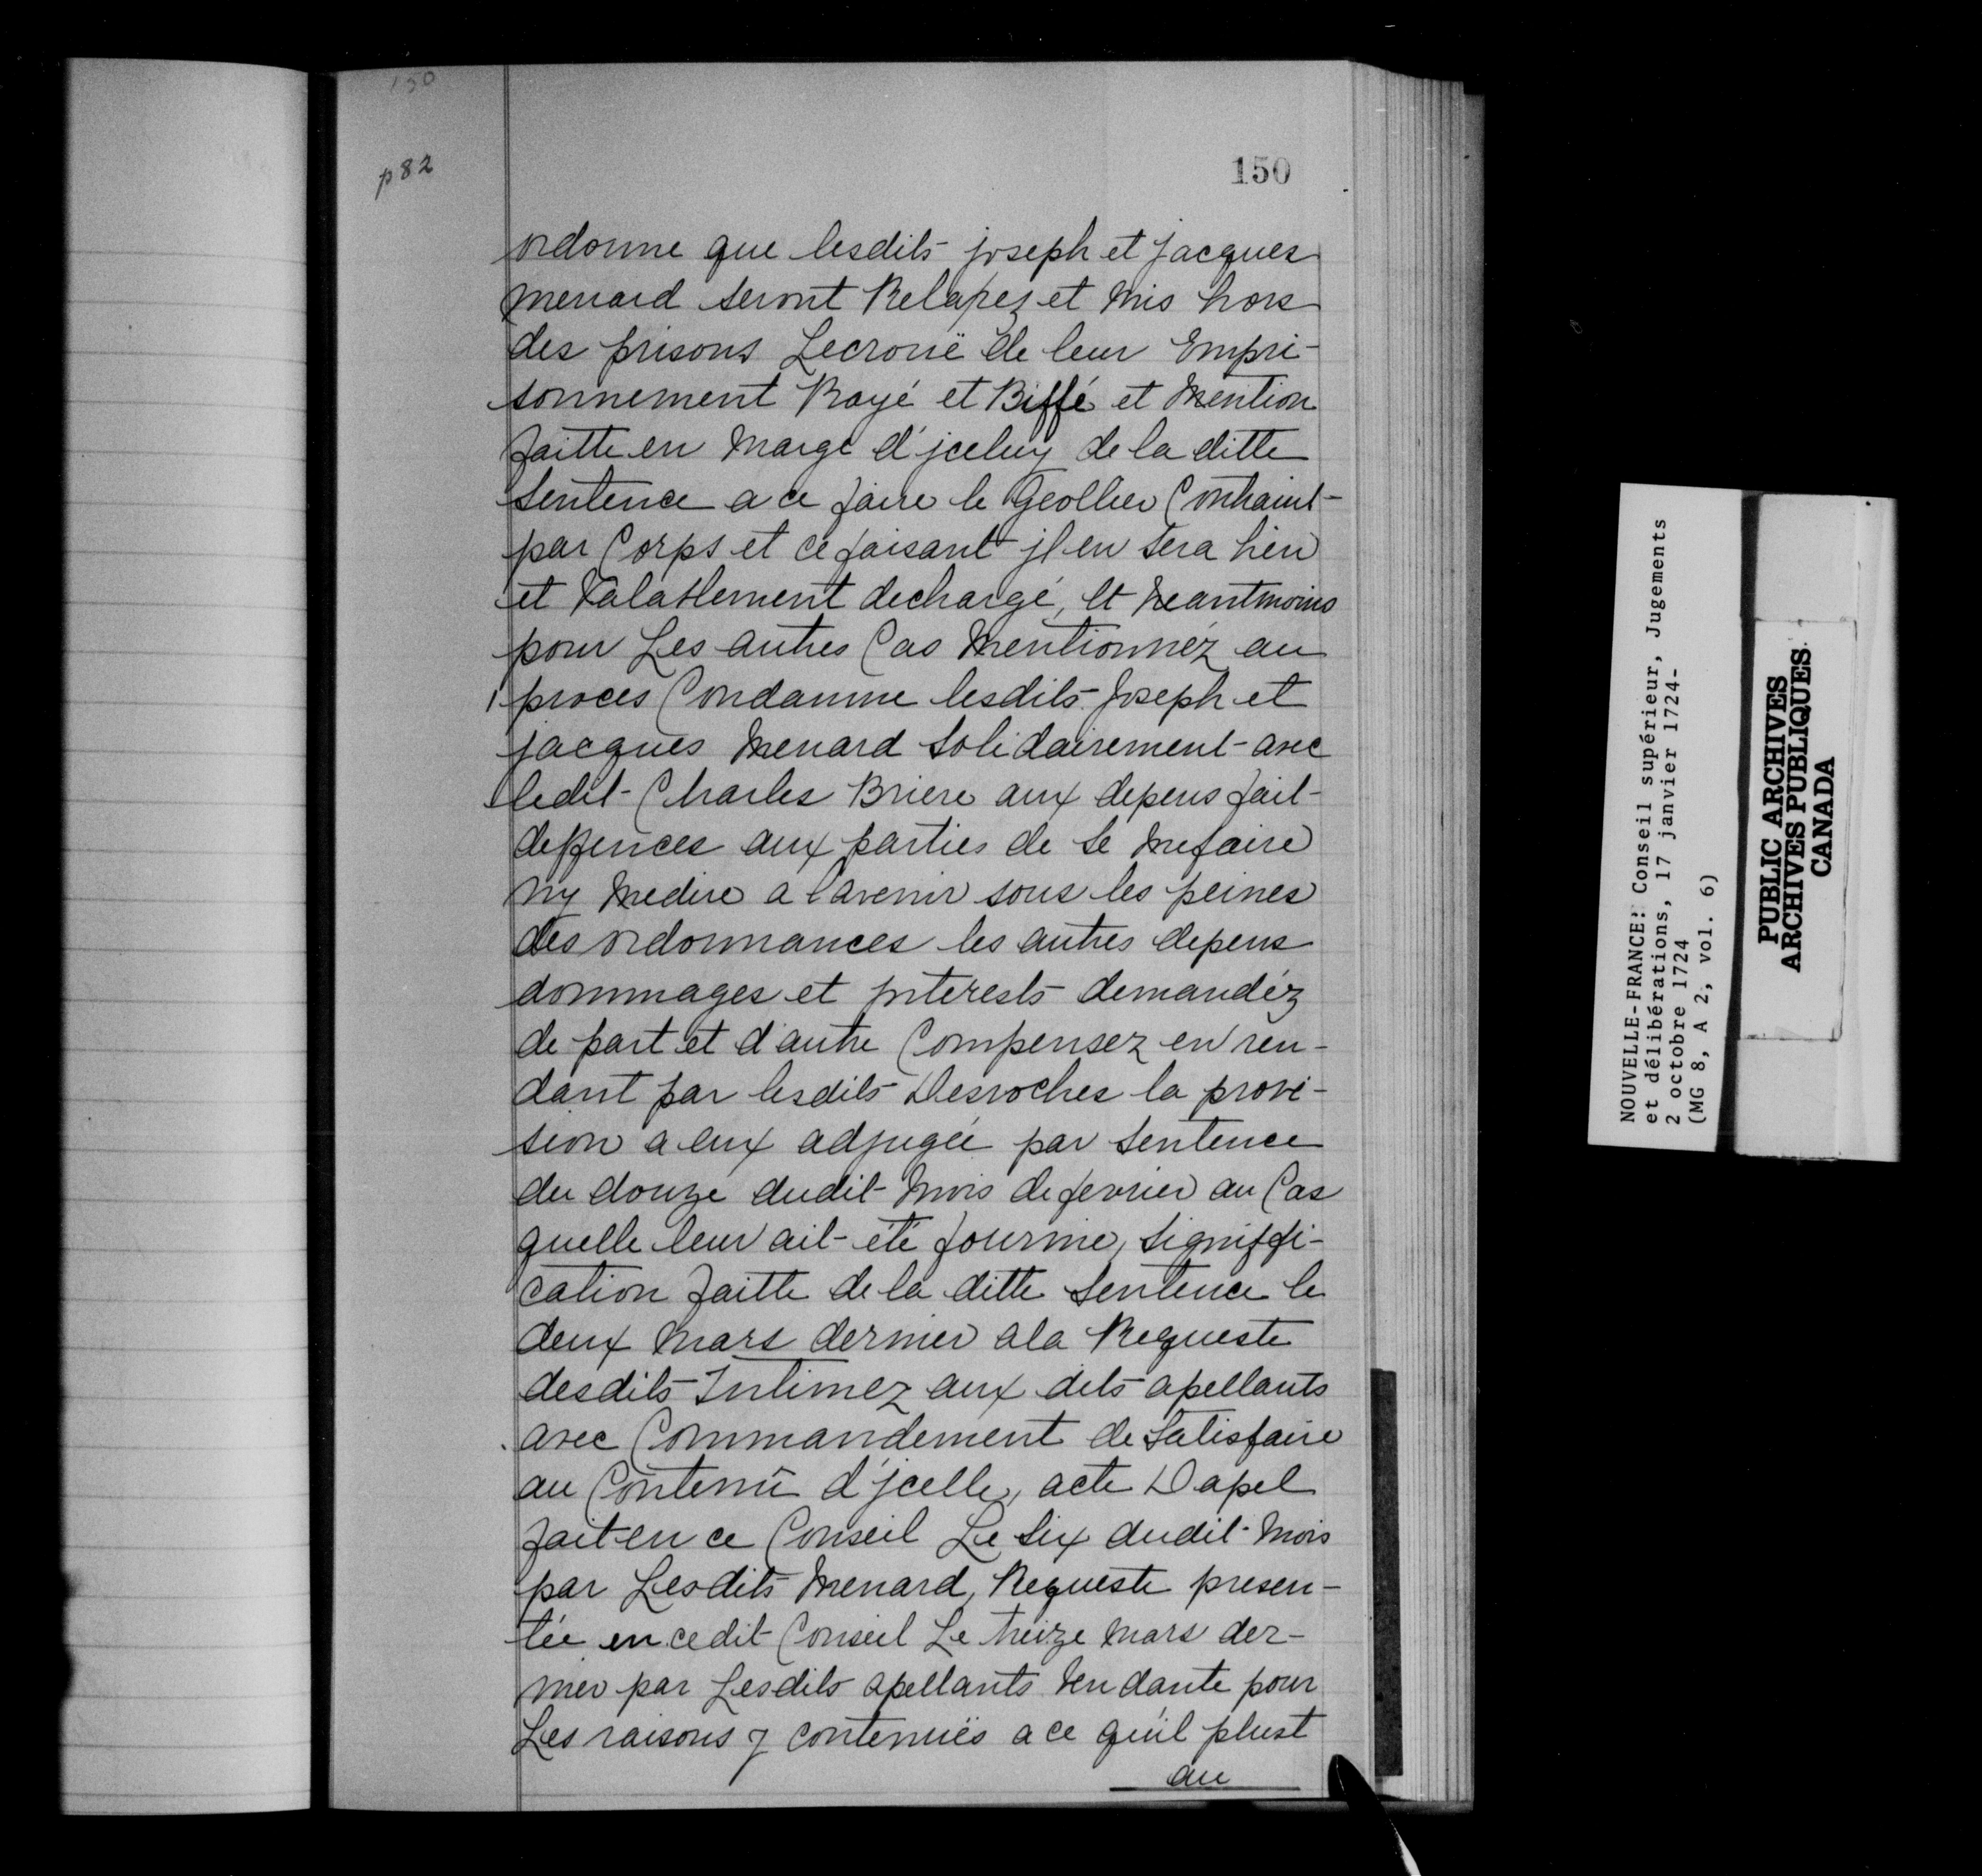 150
p 82
150
ordonne que lesdits joseph et jacques
menard seront Relapez et mis hors
des prisons Lecrouë de leur Empri-
sonnement Rayé et Biffé et mention
faitte en marge d'jceluy de la ditte
sentence a ce faire le Geollier Contraint
par Corps et ce faisant jl en sera bien
et Valablement dechargé, et neantmoins
pour Les autres Cas mentionnéz au
proces Condamne lesdits Joseph et
jacques menard solidairement avec
ledit Charles Briere aux depens fait
deffences aux parties de se mefaire
ny medire a l'avenir sous les peines
des ordonnances les autres depens
dommages et jnterests demandéz
de part et d'autre Compensez en ren-
dant par lesdits Desroches la provi-
sion a eux adjugée par sentence
du douze dudit mois de fevrier au Cas
quelle leur ait été fournie, signiffi-
cation faitte de la ditte sentence le
deux mars dernier a la Requeste
desdits Intimez aux dits apellants
avec Commandement de satisfaire
au Contenû d'jcelle, acte Dapel
fait en ce Conseil Le six dudit mois
par Lesdits menard, Requeste presen-
tée en cedit Conseil Le treize mars der-
nier par Lesdits apellants tendante pour
Les raisons y contenuës a ce qu'il plust
au
NOUVELLE-FRANCE: Conseil supérieur, Jugements
et délibérations, 17 janvier 1724-
2 octobre 1724
(MG 8, A 2, vol. 6)
PUBLIC ARCHIVES
ARCHIVES PUBLIQUES
CANADA